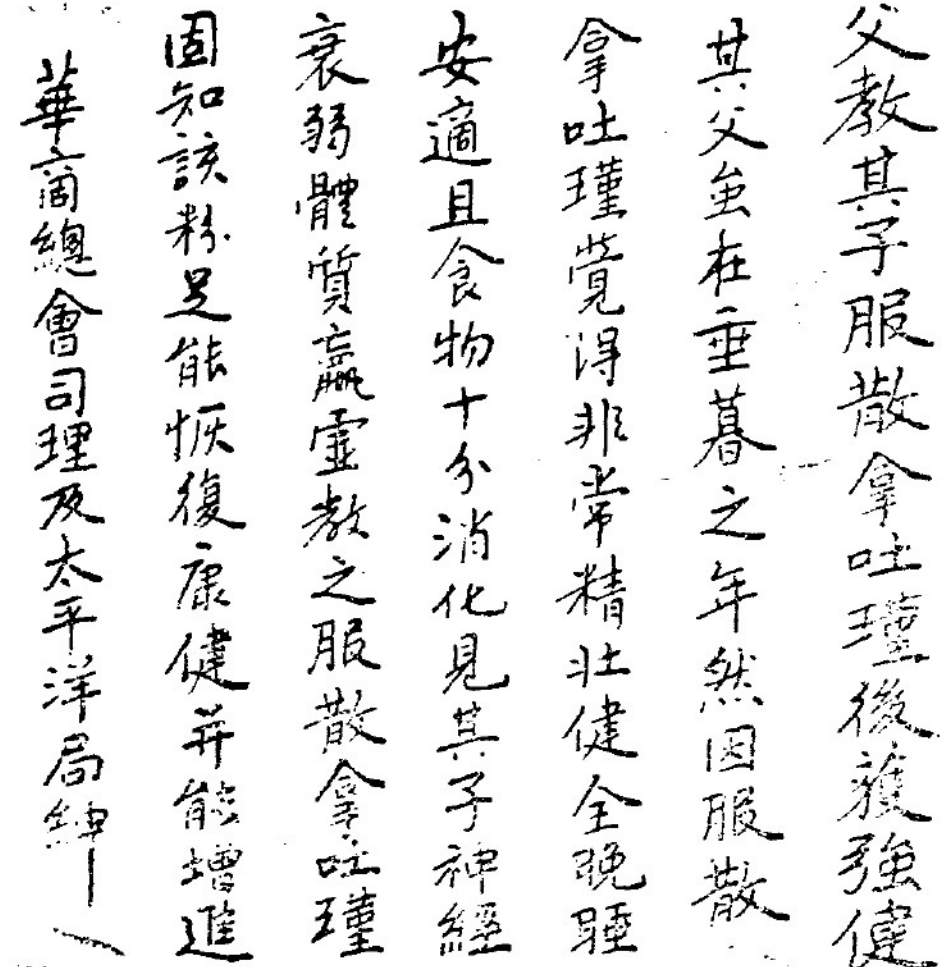 父教其子服散拿吐瑾後獲強健
其父虽在垂暮之年然因服散
拿吐瑾覺得非常精壯健全晚睡
安適且食物十分消化見其子神經
衰弱體質羸虛教之服散拿吐瑾
固知該粉足能恢復康健并能增進
華商總會司理及太平洋局紳